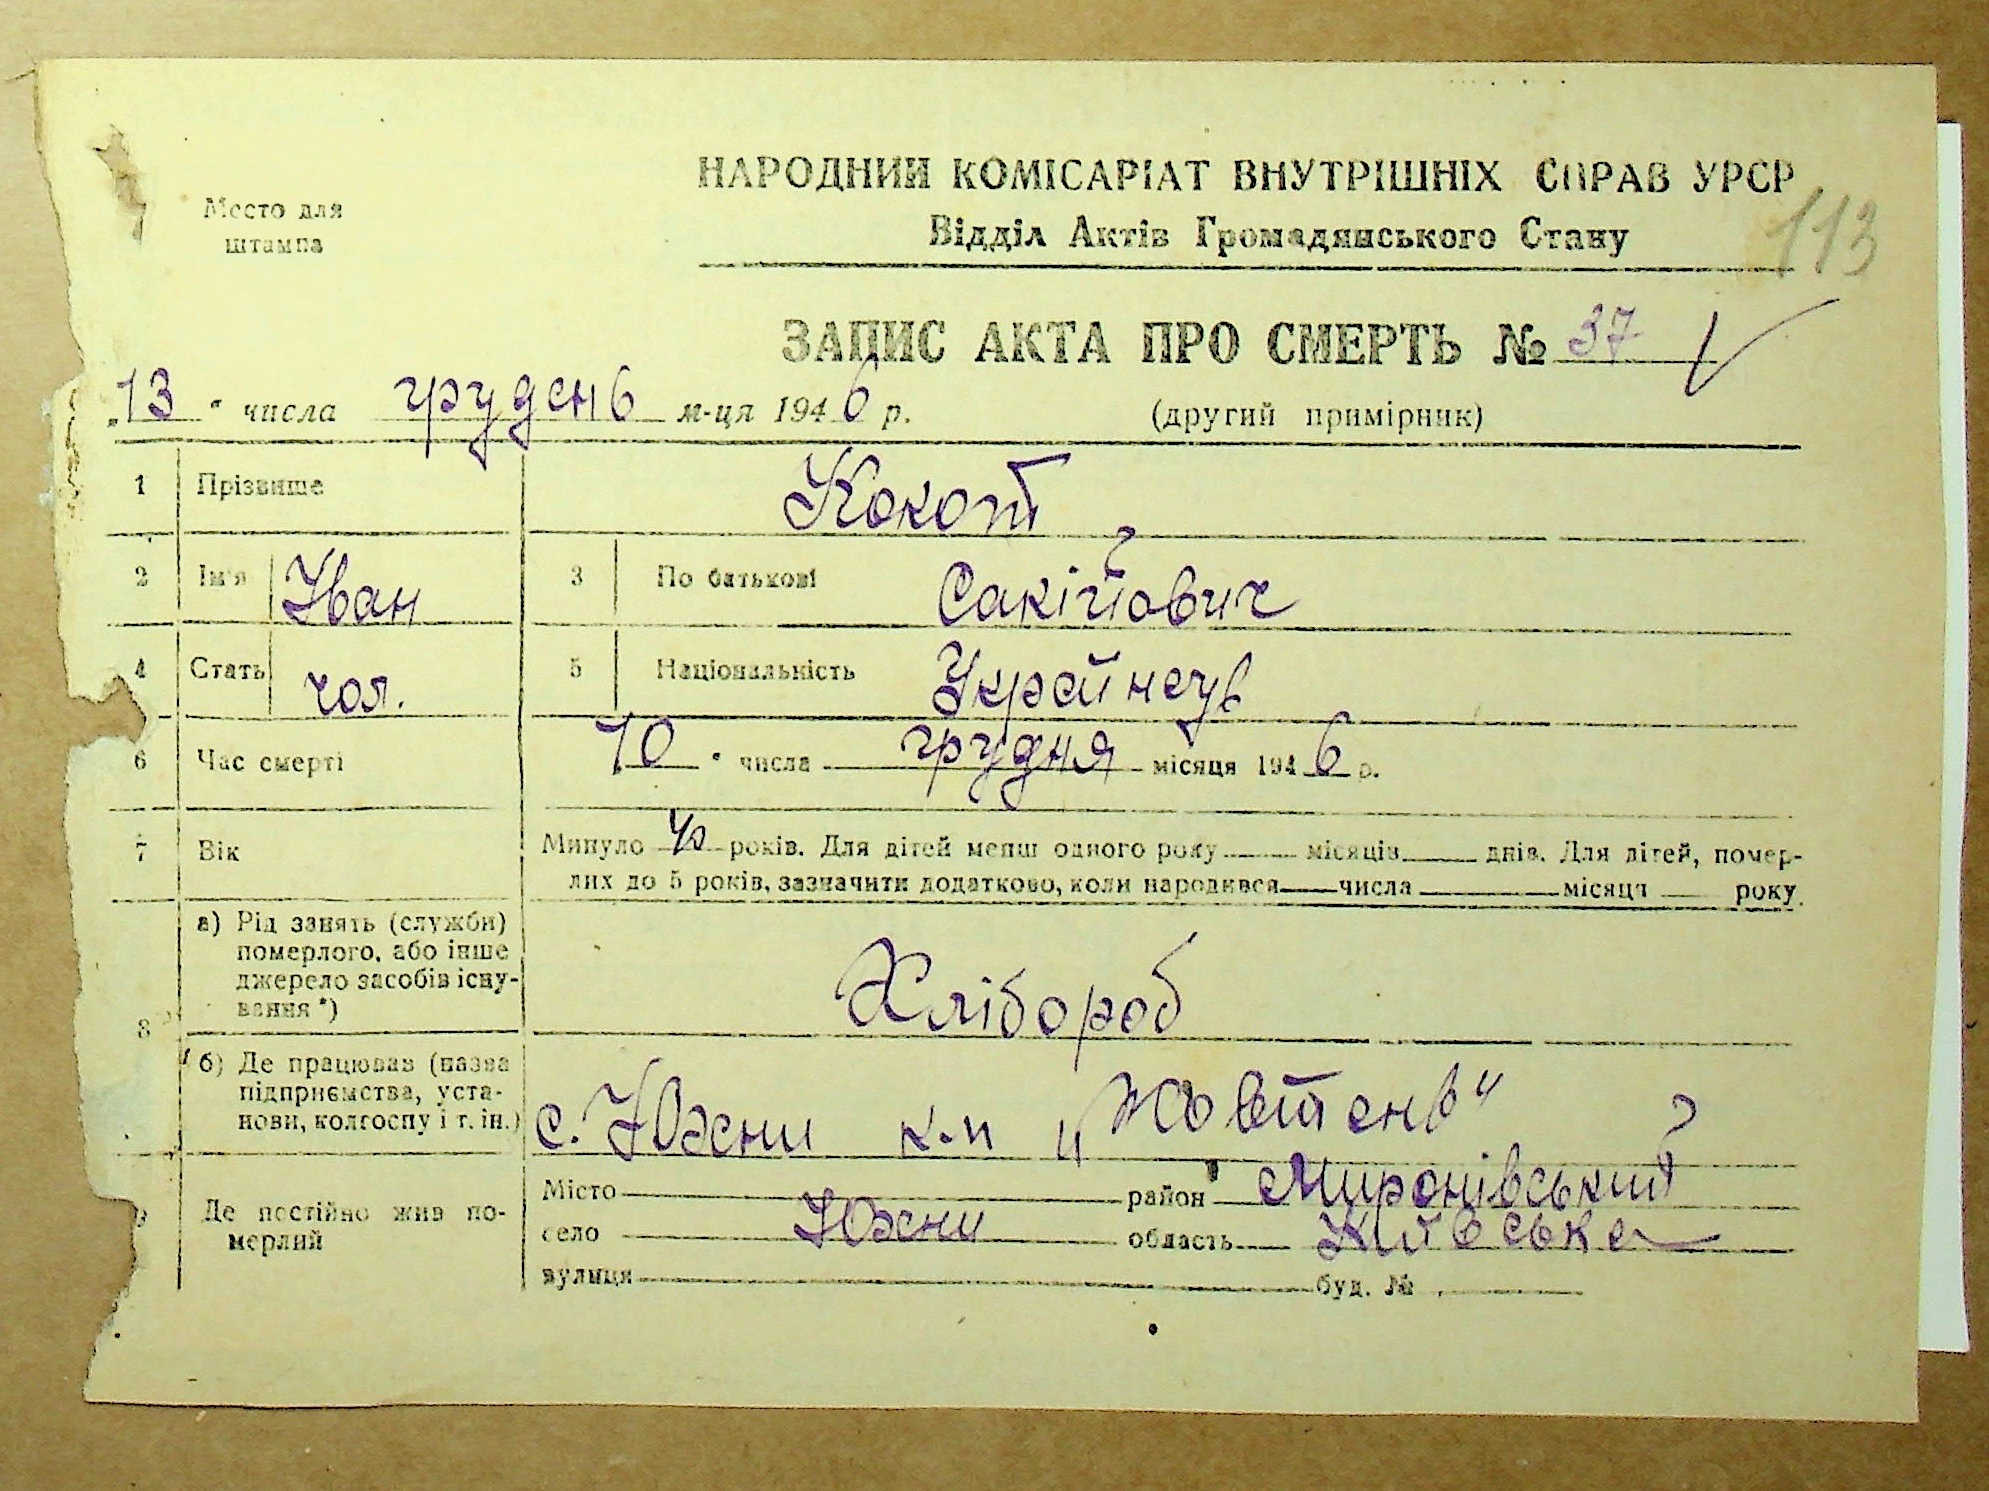 НАРОДНИЙ КОМІСАРІАТ ВНУТРІШНІХ СПРАВ УРСР
Место для
штампа
Відділ Актів Громадянського Стану
113
ЗАПИС АКТА ПРО СМЕРТЬ № 37
„13 “ числа грудень м-ця 1946 р.
(другий примірник)
1 Прізвище Кокот
2 Ім'я Іван 3 По батькові Сакійович
4 Стать чол. 5 Національність Українець
6 Час смерті 10 “ числа грудня місяця 1946 р.
7 Вік Минуло років. Для дітей менш одного року місяців днів. Для дітей, помер-
лих до 5 років, зазначити додатково, коли народився числа місяця року
8 а) Рід занять (служби)
померлого, або інше
джерело засобів існу-
вання*)
Хлібороб
б) Де працював (назва
підприємства, уста-
нови, колгоспу і т. ін.)
с. Юхни к-п „Жовтень"
9 Де постійно жив по-
мерлий
Місто район Миронівський
село Юхни область Київська
вулиця буд. №